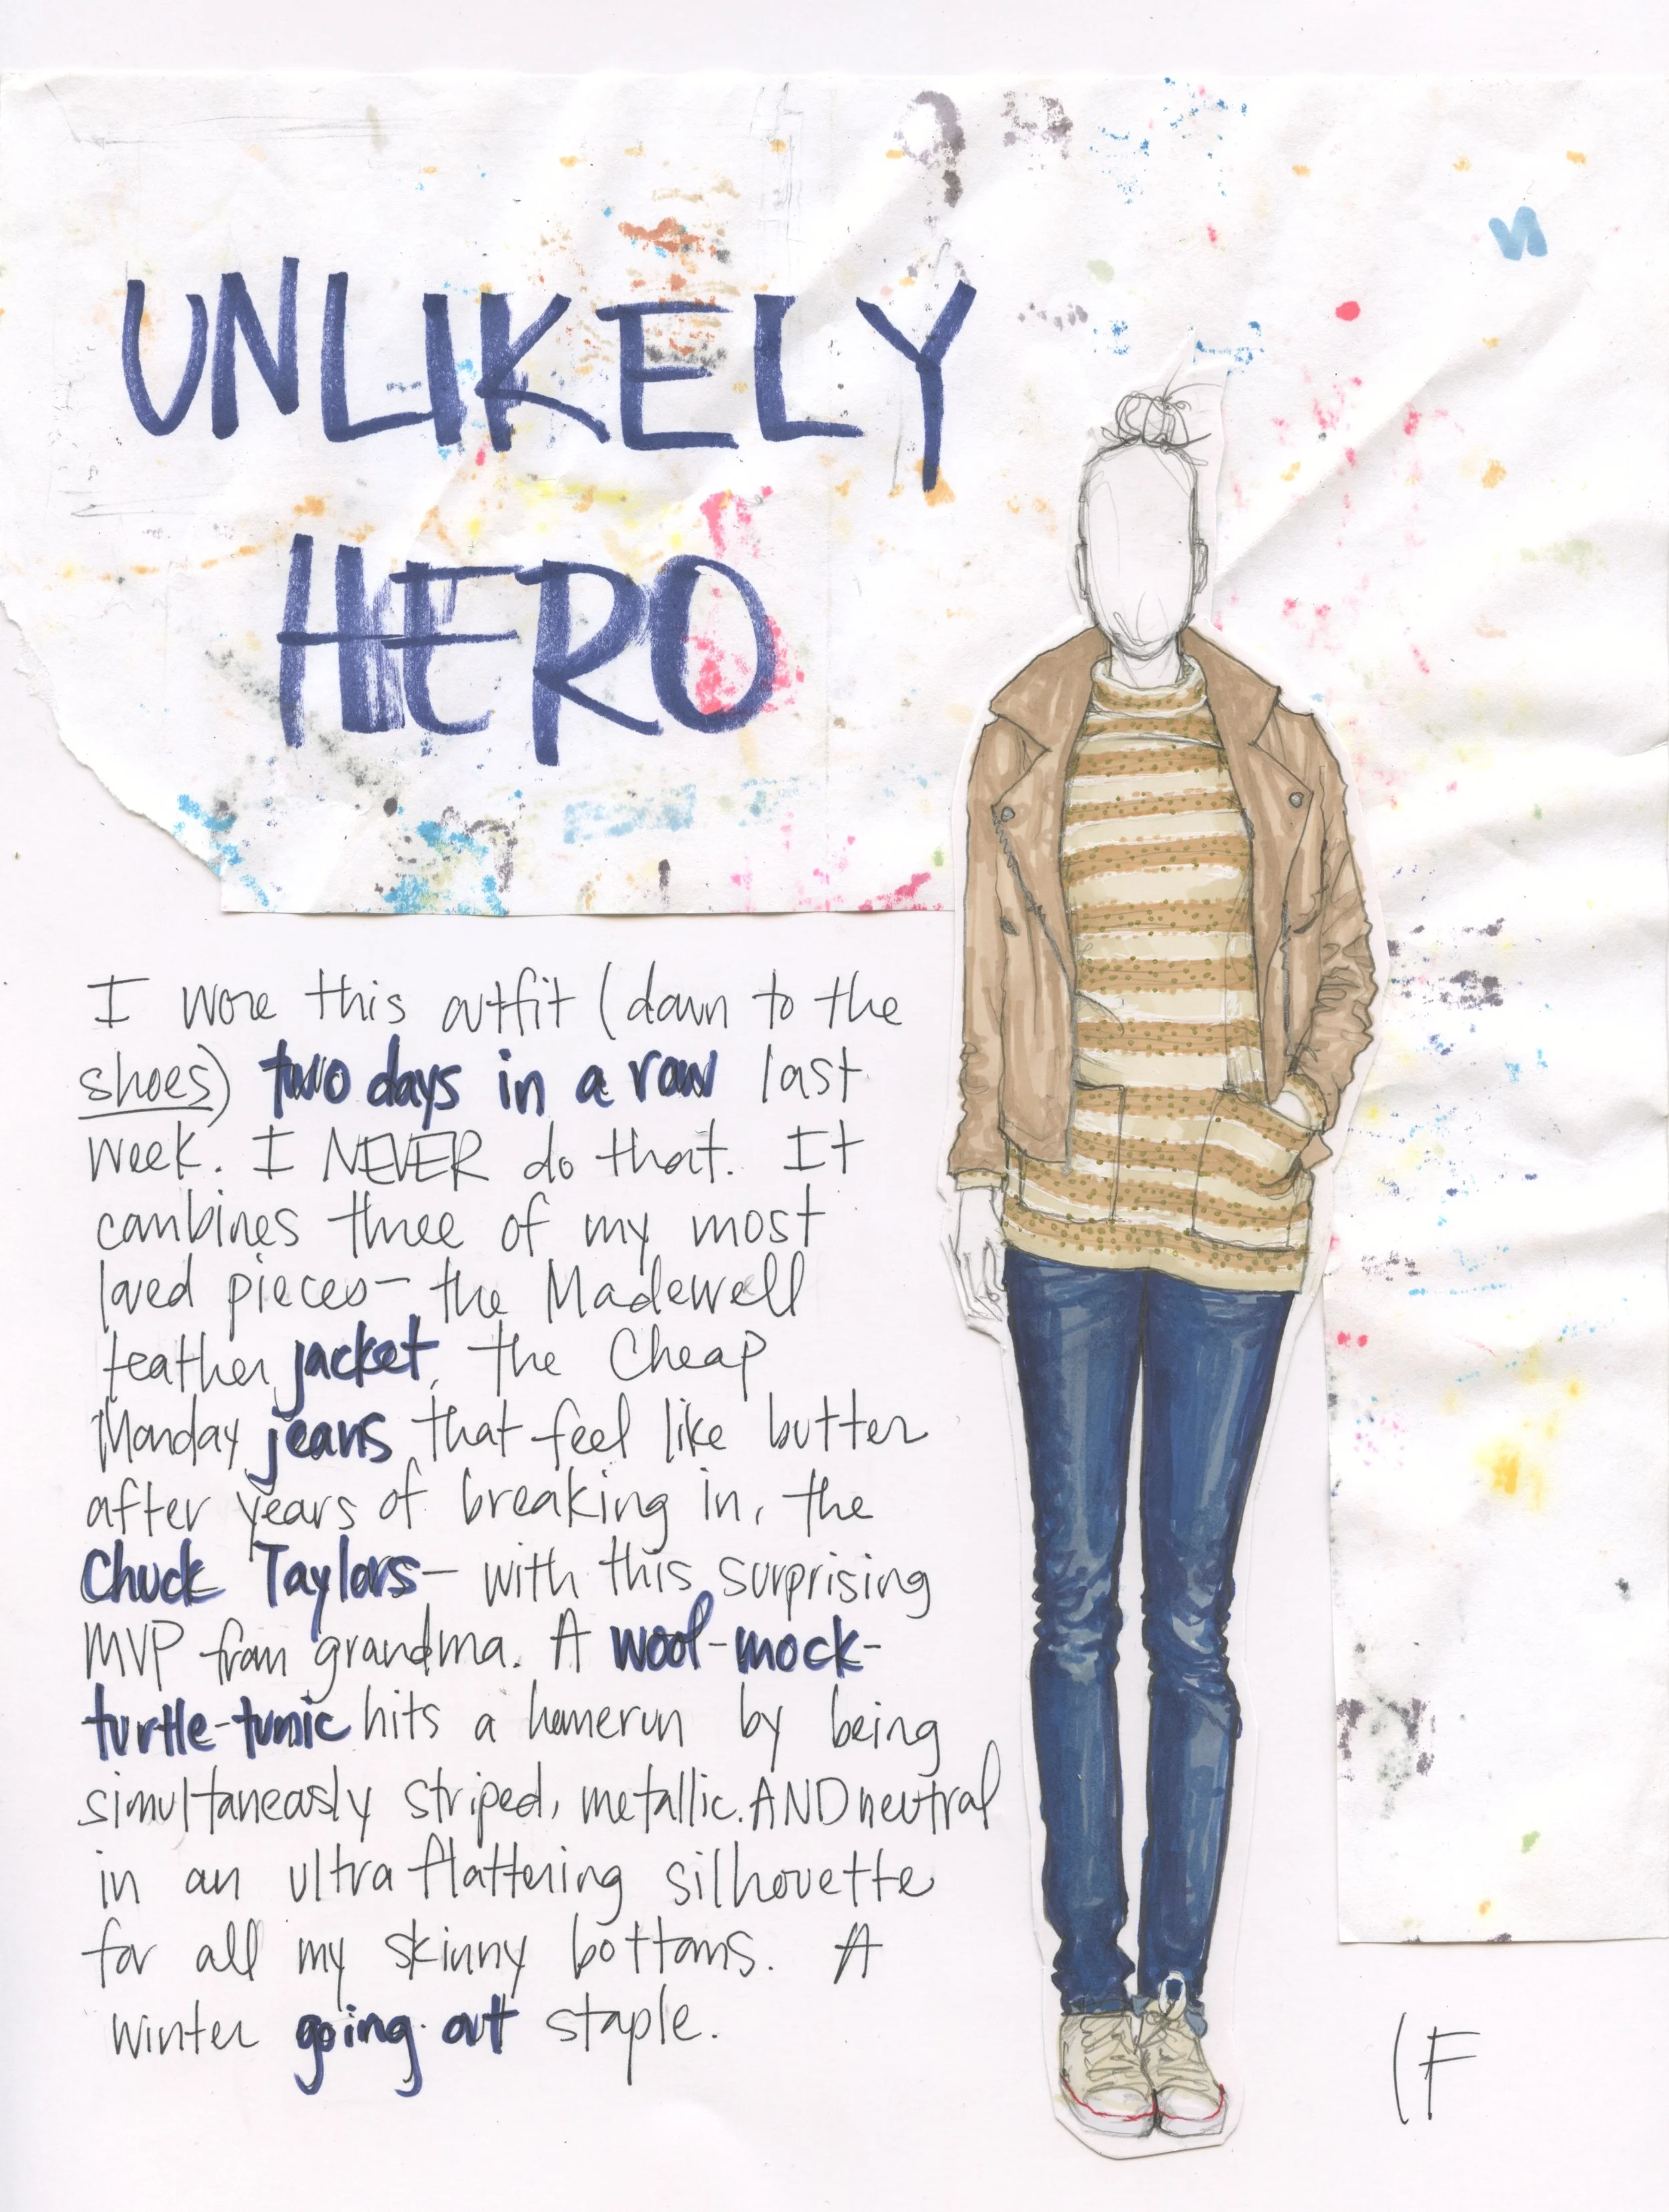 UNLIKELY
HERO
I wore this outfit (down to the
shoes) two days in a row last
week. I NEVER do that. It
combines three of my most
loved pieces- the Madewell
leather jacket, the Cheap
Monday jeans that feel like butter
after years of breaking in, the
Chuck Taylors- with this surprising
MVP from grandma. A wool-mock-
turtle-tunic hits a homerun by being
simultaneously striped, metallic. AND neutral
in an ultra flattering silhouette
for all my skinny bottoms. A
winter going out staple.